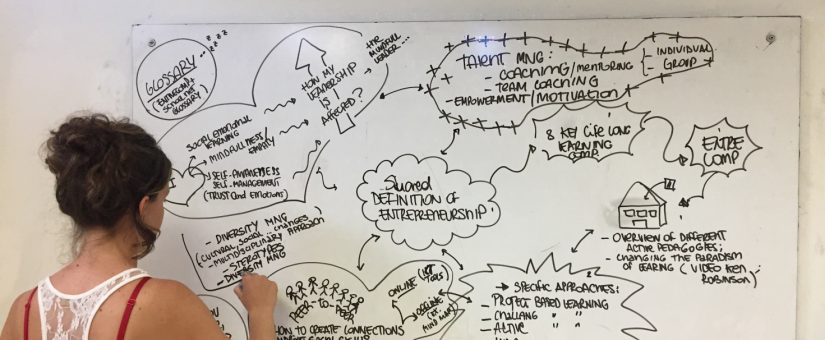 GLOSSARY
SOCIAL EMOTIONAL
LEARNING
MINDFULLNESS
EMPATY
SELF-AWARENESS
SELF-MANAGEMENT
(TRUST and EMOTIONS)
HOW MY
LEADERSHIP
IS
AFFECTED?
THE
MINDFULL
LEADER...
TALENT MNG:
- COACHING/MENTORING
- TEAM COACHING
- EMPOWERMENT/MOTIVATION
- INDIVIDUAL
- GROUP
8 KEY LIFE LONG
LEARNING
COMP.
ENTRE
COMP
Shared
DEFINITION OF
ENTREPRENEURSHIP.
- DIVERSITY MNG
(CULTURAL, SOCIAL, CHANGES
- MULTIDISCIPLINARY APPROACH
- STEROTYPES
- DIVERSITY MNG
- OVERVIEW OF DIFFERENT
ACTIVE PEDAGOGIES;
- CHANGING THE PARADISM
OF LEARING (VIDEO KEN
ROBINSON)
PEER-to-PEER
HOW TO CREATE CONNECTIONS
ONLINE
TOOLS
OFFLINE
MIND MAP
→ SPECIFIC APPROACHES:
- PROJECT BASED LEARNING
- CHALLANG " "
- ACTIVE " "